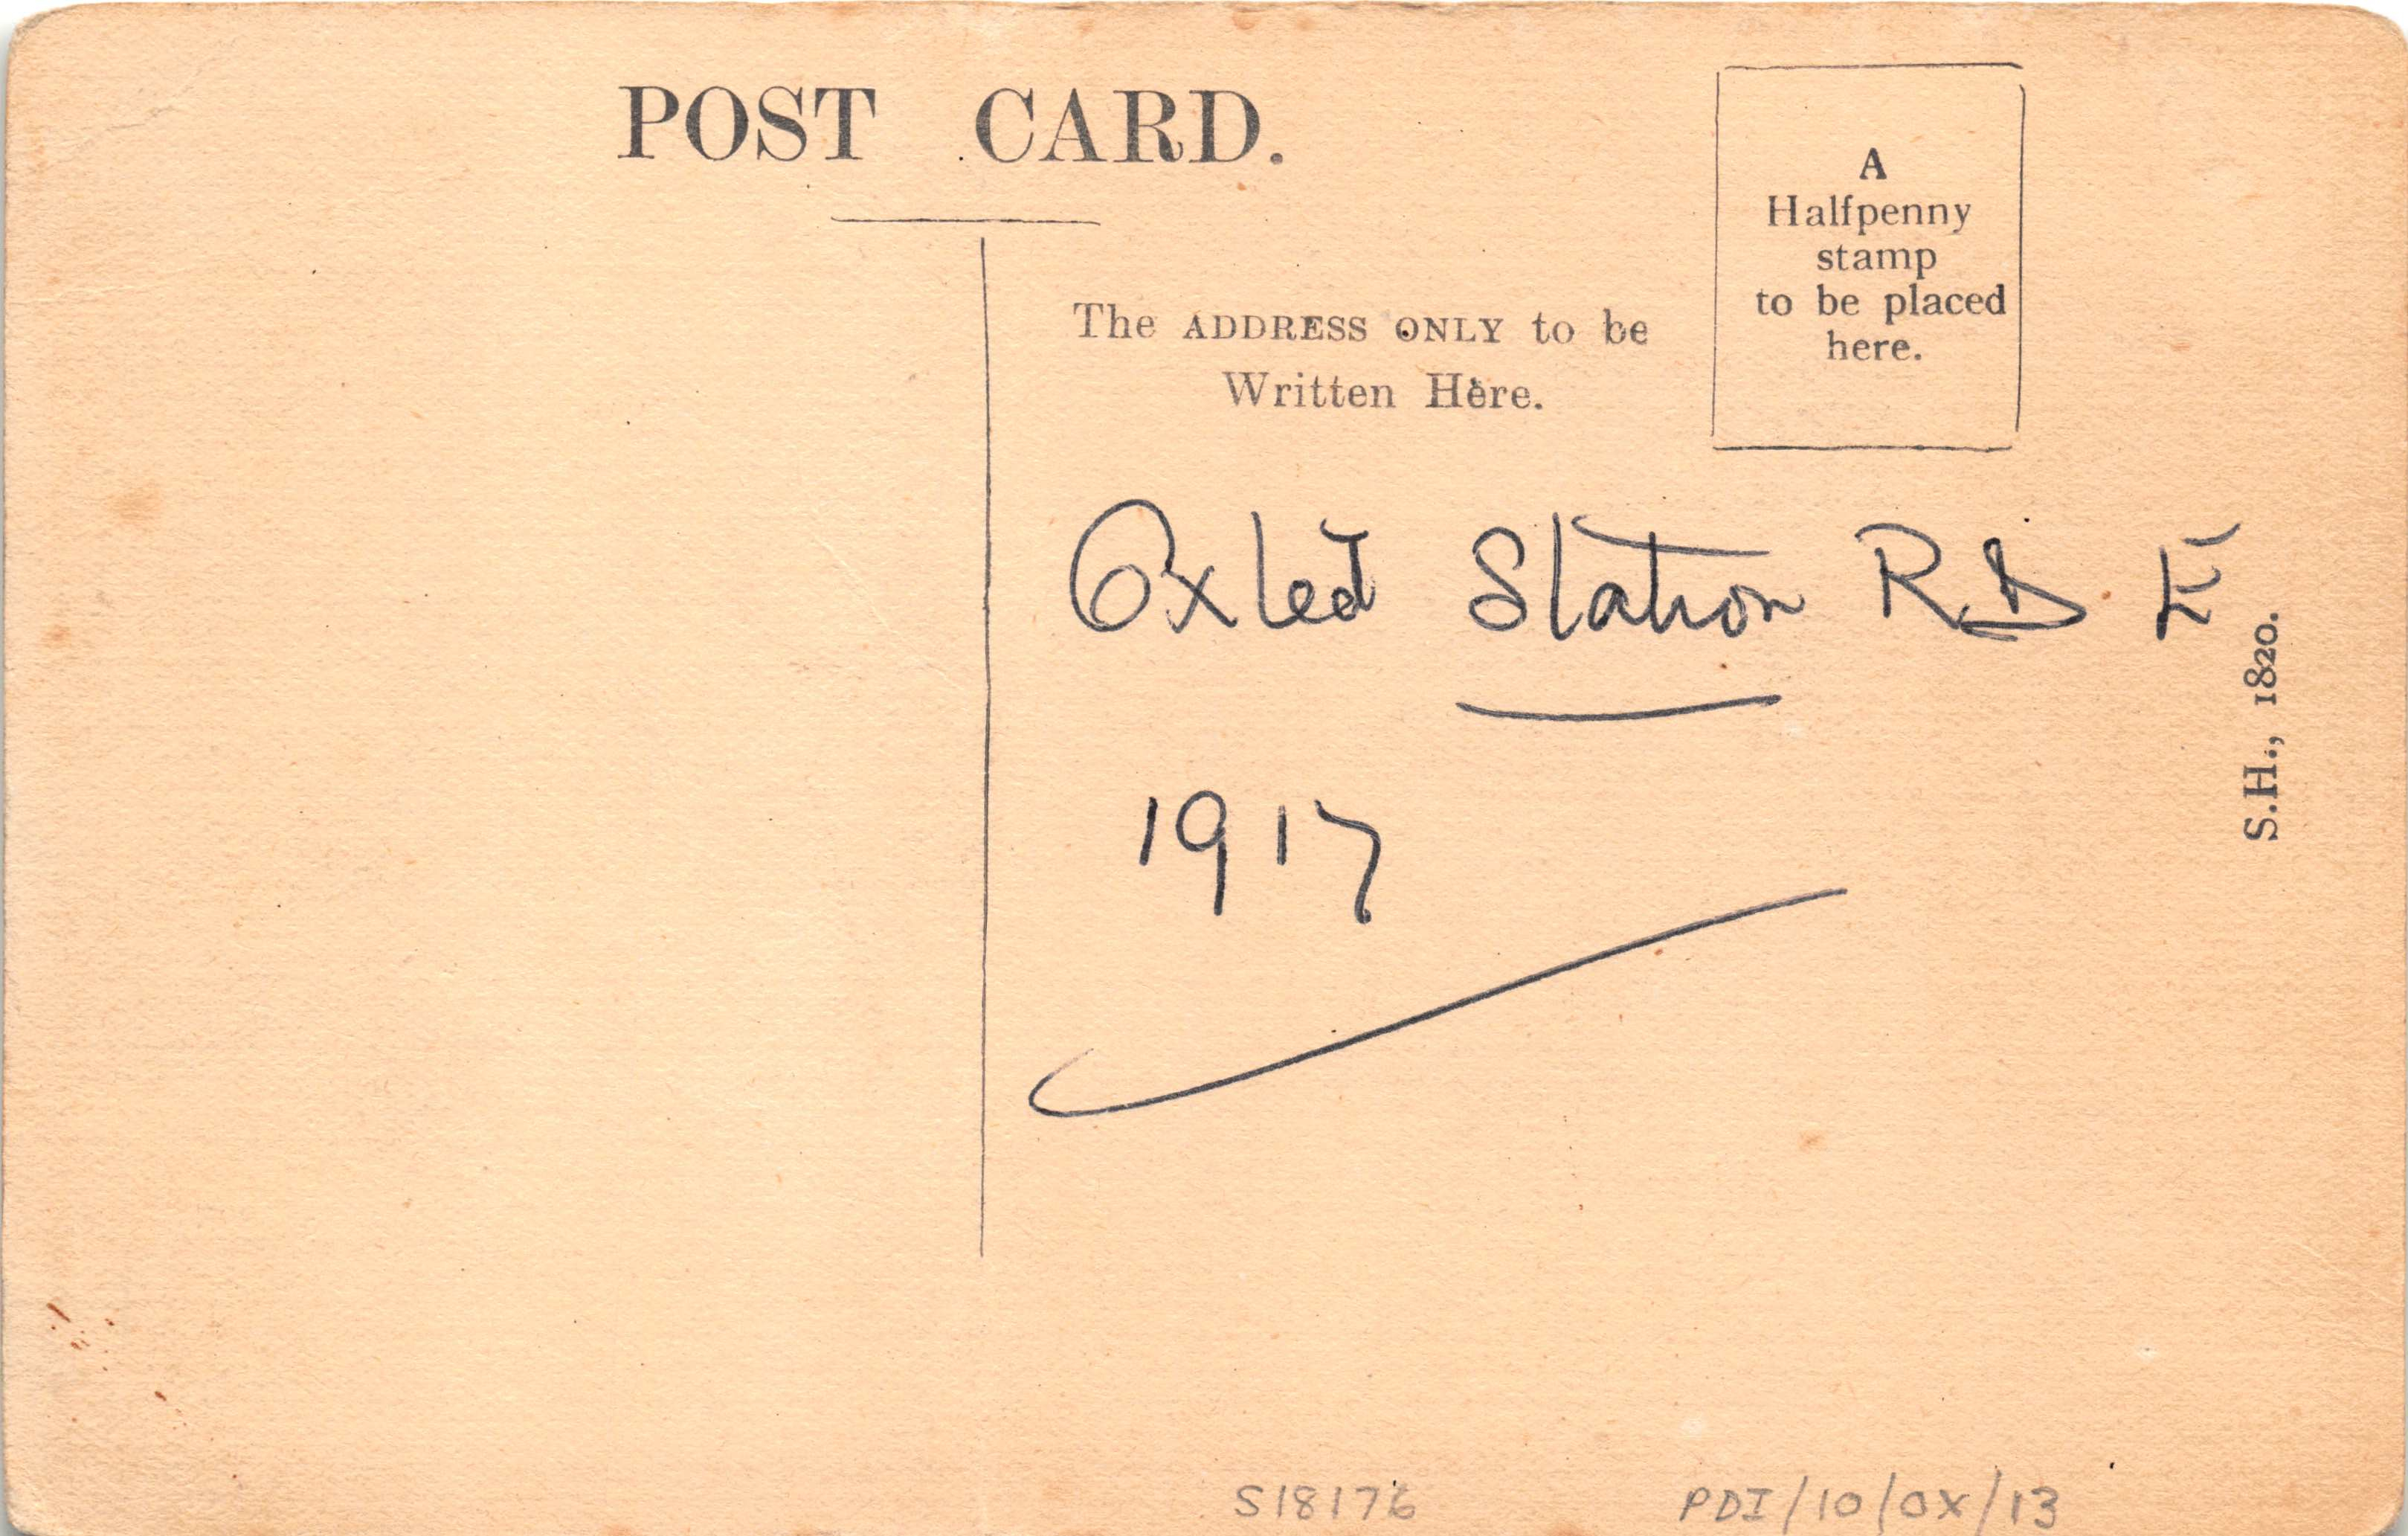 POST CARD.
A
Halfpenny
stamp
to be placed
here.
The ADDRESS ONLY to be
Written Here.
Oxted Station RD E
1917
S.H., 1820.
S18176
PDI/10/OX/13